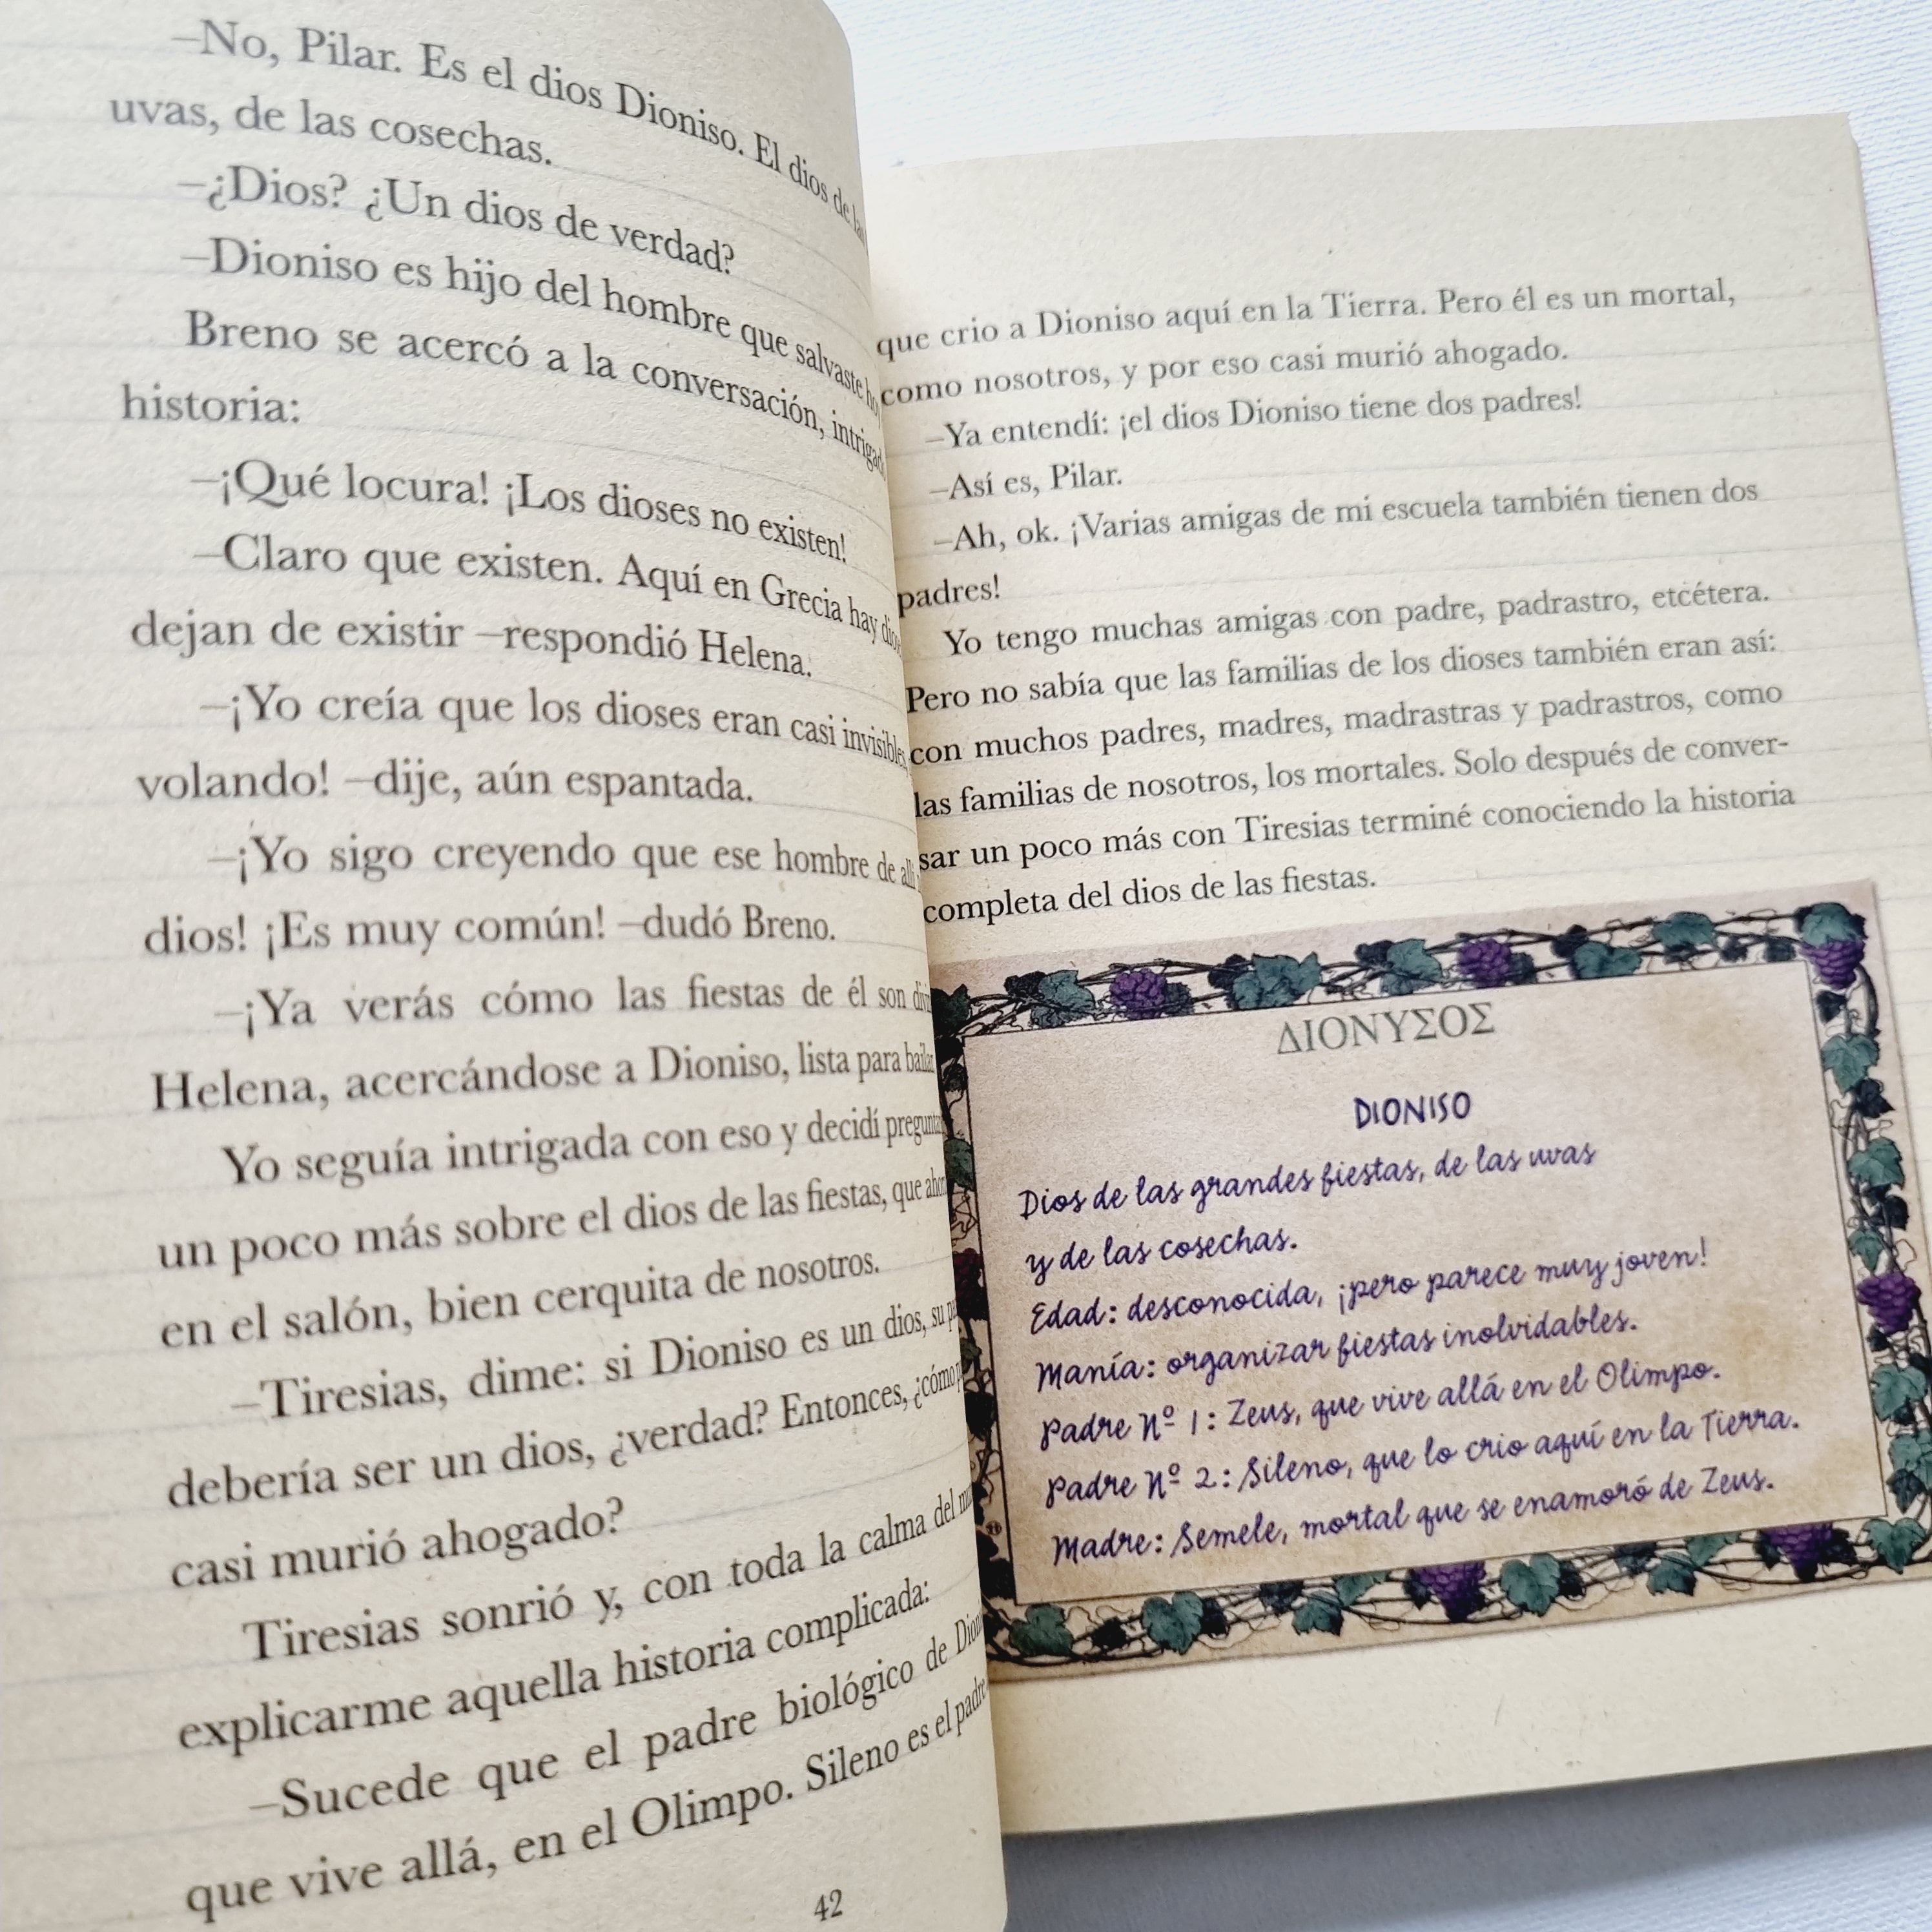 –No, Pilar. Es el dios Dioniso. El dios de las
uvas, de las cosechas.
–¿Dios? ¿Un dios de verdad?
–Dioniso es hijo del hombre que salvaste
Breno se acercó a la conversación,
historia:
–¡Qué locura! ¡Los dioses no existen!
–Claro que existen. Aquí en Grecia hay
dejan de existir –respondió Helena.
–¡Yo creía que los dioses eran casi invisibles,
volando! –dije, aún espantada.
–¡Yo sigo creyendo que ese hombre de
dios! ¡Es muy común! –dudó Breno.
–¡Ya verás cómo las fiestas de él son
Helena, acercándose a Dioniso, lista para
Yo seguía intrigada con eso y decidí
un poco más sobre el dios de las fiestas, que
en el salón, bien cerquita de nosotros.
–Tiresias, dime: si Dioniso es un dios, su
debería ser un dios, ¿verdad? Entonces, ¿cómo
casi murió ahogado?
Tiresias sonrió y, con toda la calma del
explicarme aquella historia complicada:
–Sucede que el padre biológico de
que vive allá, en el Olimpo. Sileno es el padre
42
que crio a Dioniso aquí en la Tierra. Pero él es un mortal,
como nosotros, y por eso casi murió ahogado.
–Ya entendí: ¡el dios Dioniso tiene dos padres!
–Así es, Pilar.
–Ah, ok. ¡Varias amigas de mi escuela también tienen dos
padres!
Yo tengo muchas amigas con padre, padrastro, etcétera.
Pero no sabía que las familias de los dioses también eran así:
con muchos padres, madres, madrastras y padrastros, como
las familias de nosotros, los mortales. Solo después de conver-
sar un poco más con Tiresias terminé conociendo la historia
completa del dios de las fiestas.
ΔΙΟΝΥΣΟΣ
DIONISO
Dios de las grandes fiestas, de las uvas
y de las cosechas.
Edad: desconocida, ¡pero parece muy joven!
Manía: organizar fiestas inolvidables.
Padre Nº 1: Zeus, que vive allá en el Olimpo.
Padre Nº 2: Sileno, que lo crio aquí en la Tierra.
Madre: Semele, mortal que se enamoró de Zeus.